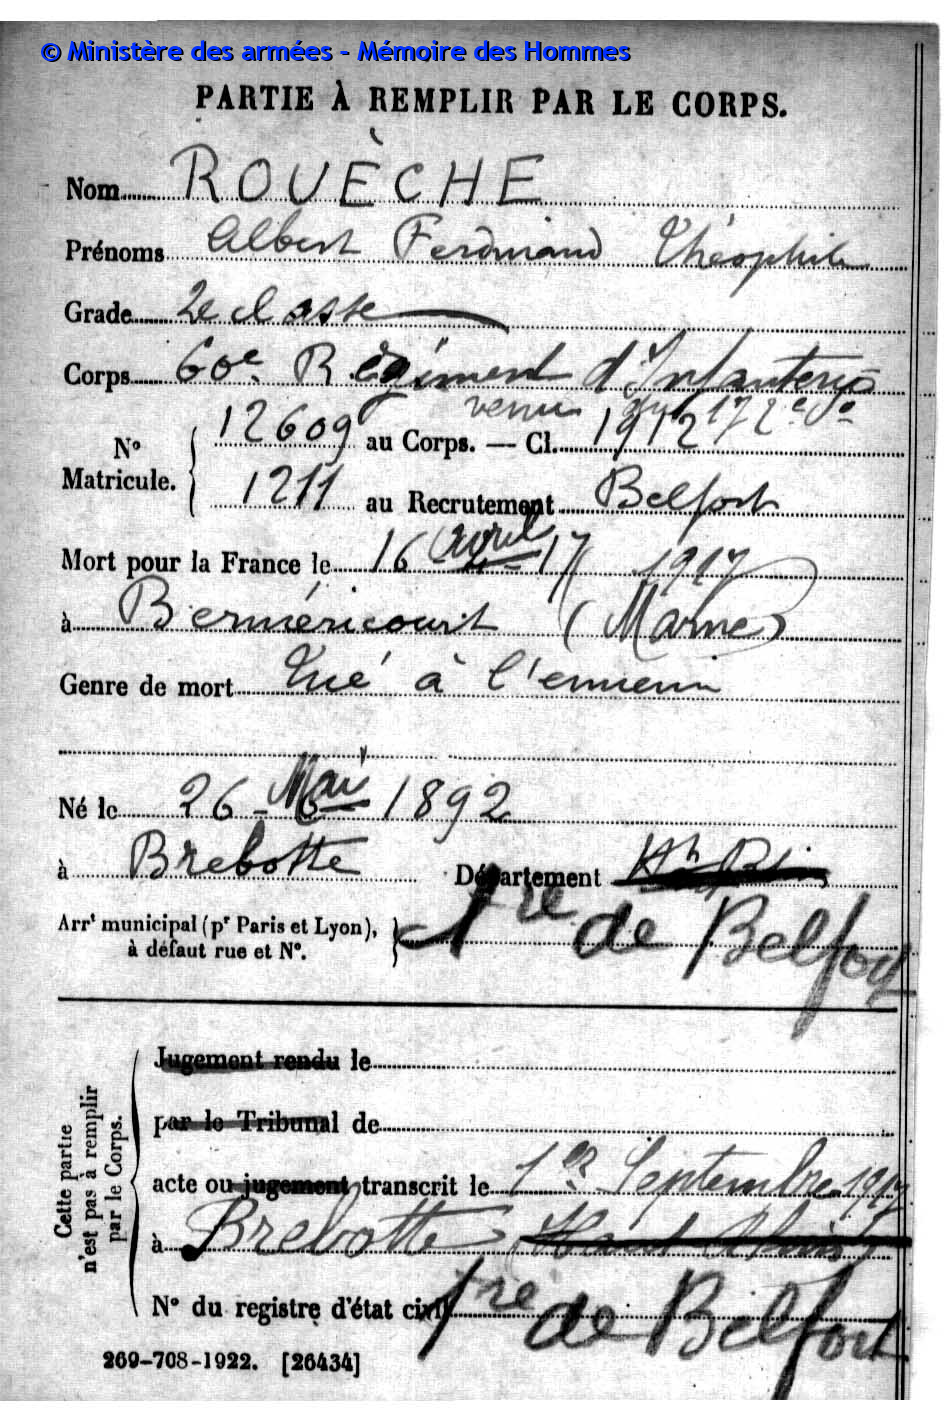 © Ministère des armées - Mémoire des Hommes
PARTIE À REMPLIR PAR LE CORPS.
Nom ROUÈCHE
Prénoms Albert Ferdinand Théophile
Grade 2e classe
Corps 60e Régiment d'Infanterie
venu du 172e
N° Matricule. { 12609 au Corps. — Cl. 1912
1211 au Recrutement Belfort
Mort pour la France le 16 avril 17 1917
à Berméricourt (Marne)
Genre de mort Tué à l'ennemi
Né le 26 Mai 1892
à Brebotte Département Ht Rhin
Arrt municipal (pr Paris et Lyon), à défaut rue et N°. } Tre de Belfort
Cette partie n'est pas à remplir par le Corps.
Jugement rendu le
par le Tribunal de
acte ou jugement transcrit le 1er Septembre 1917
à Brebotte Haut Rhin
N° du registre d'état civil Tre de Belfort
269-708-1922. [26434]